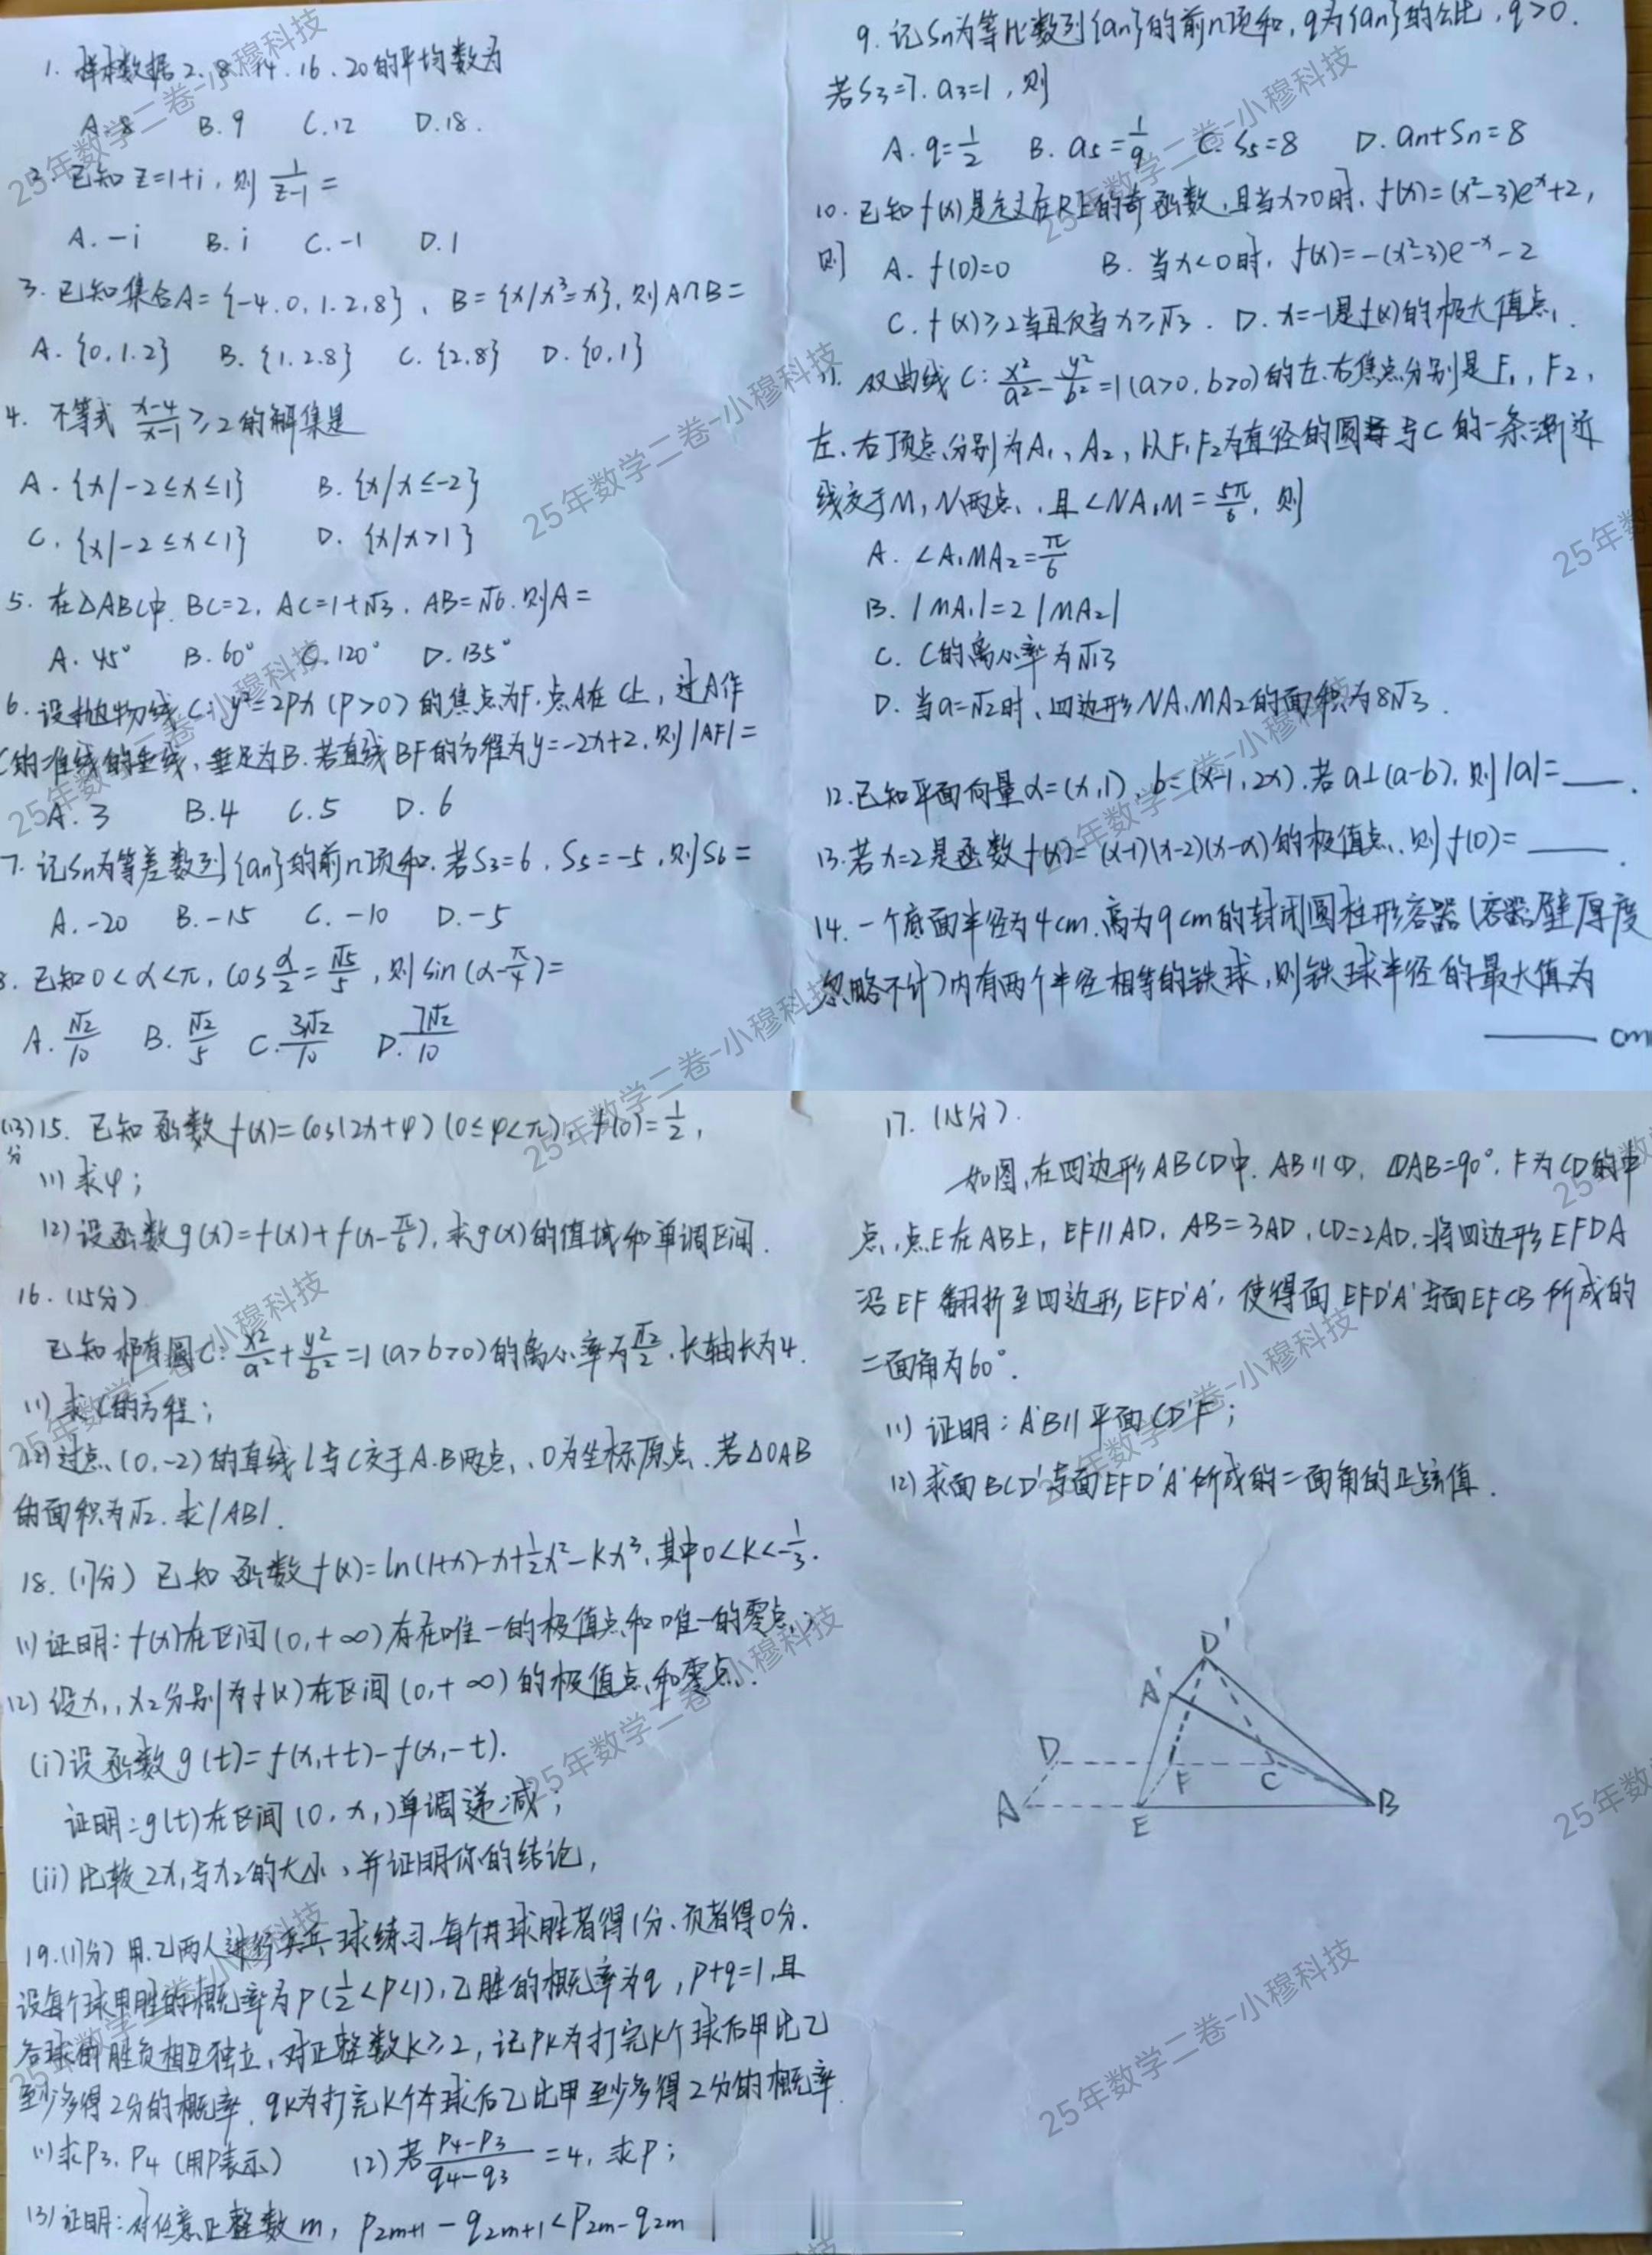 1. 样本数据2.8.14.16.20的平均数为
A.8 B.9 C.12 D.18.
2. 已知z=1+i,则 1/(z-1) =
A.-i B.i C.-1 D.1
3. 已知集合A={-4.0.1.2.8}, B={x/x³=x},则A∩B=
A.{0.1.2} B.{1.2.8} C.{2.8} D.{0.1}
4. 不等式 (x-4)/(x-1) ≥2的解集是
A.{x/-2≤x≤1} B.{x/x≤-2}
C.{x/-2≤x<1} D.{x/x>1}
5. 在△ABC中.BC=2, AC=1+√3, AB=√6.则A=
A.45° B.60° C.120° D.135°
6. 设抛物线C:y²=2px(p>0)的焦点为F.点A在C上,过A作
C的准线的垂线,垂足为B.若直线BF的方程为y=-2x+2,则|AF|=
A.3 B.4 C.5 D.6
7. 记Sn为等差数列{an}的前n项和.若S3=6, S5=-5,则S6=
A.-20 B.-15 C.-10 D.-5
8. 已知0<α<π, cos α/2 = √5/5,则sin(α-π/4)=
A. √2/10 B. √2/5 C. 3√2/10 D. 7√2/10
9. 记Sn为等比数列{an}的前n项和,q为{an}的公比,q>0.
若S3=7.a3=1,则
A.q=1/2 B.a5=1/9 C.S5=8 D.an+Sn=8
10. 已知f(x)是定义在R上的奇函数,且当x>0时,f(x)=(x²-3)eˣ+2,
则 A.f(0)=0 B.当x<0时,f(x)=-(x²-3)e⁻ˣ-2
C.f(x)≥2当且仅当x≥√3. D.x=-1是f(x)的极大值点.
11. 双曲线C: x²/a² - y²/b² =1(a>0.b>0)的左、右焦点分别是F1,F2,
左、右顶点分别为A1、A2,以F1F2为直径的圆与C的一条渐近
线交于M,N两点,且∠NA1M=5π/6,则
A.∠A1MA2=π/6
B.|MA1|=2|MA2|
C.C的离心率为√13
D.当a=√2时、四边形NA1MA2的面积为8√3.
12.已知平面向量a=(x,1), b=(x-1,2x).若a⊥(a-b),则|a|=____.
13.若x=2是函数f(x)=(x-1)(x-2)(x-a)的极值点.则f(0)=____.
14.一个底面半径为4cm.高为9cm的封闭圆柱形容器(容器壁厚度
忽略不计)内有两个半径相等的铁球,则铁球半径的最大值为
____cm
(13分)15. 已知函数f(x)=cos(2x+φ)(0≤φ<π), f(0)=1/2,
(1)求φ;
(2)设函数g(x)=f(x)+f(x-π/6).求g(x)的值域和单调区间.
16.(15分)
已知椭圆C: x²/a² + y²/b² =1(a>b>0)的离心率为√2/2.长轴长为4.
(1)求C的方程;
(2)过点(0,-2)的直线l与C交于A.B两点,O为坐标原点.若△OAB
的面积为√2.求|AB|.
18.(17分)已知函数f(x)=ln(1+x)-x+½x²-kx³,其中0<k<1/3.
(1)证明:f(x)在区间(0,+∞)存在唯一的极值点和唯一的零点;
(2)设x1,x2分别为f(x)在区间(0,+∞)的极值点和零点.
(i)设函数g(t)=f(x1+t)-f(x1-t).
证明:g(t)在区间(0,x1)单调递减;
(ii)比较2x1与x2的大小,并证明你的结论,
19.(17分)甲.乙两人进行乒乓球练习.每个球胜者得1分、负者得0分.
设每个球甲胜的概率为P(½<P<1),乙胜的概率为q,p+q=1,且
各球的胜负相互独立,对正整数k≥2,记pk为打完k个球后甲比乙
至少多得2分的概率,qk为打完k个球后乙比甲至少多得2分的概率.
(1)求P3,P4(用P表示) (2)若 (P4-P3)/(q4-q3) =4,求P;
(3)证明:对任意正整数m, P2m+1-q2m+1<P2m-q2m
17.(15分).
如图,在四边形ABCD中.AB∥CD,∠DAB=90°.F为CD的中
点,点E在AB上,EF∥AD, AB=3AD,CD=2AD.将四边形EFDA
沿EF翻折至四边形EFD'A',使得面EFD'A'与面EFCB所成的
二面角为60°.
(1)证明:A'B∥平面CD'F;
(2)求面BCD'与面EFD'A'所成的二面角的正弦值.
D'
A'
D
F
C
A
E
B
25年数学二卷-小穆科技